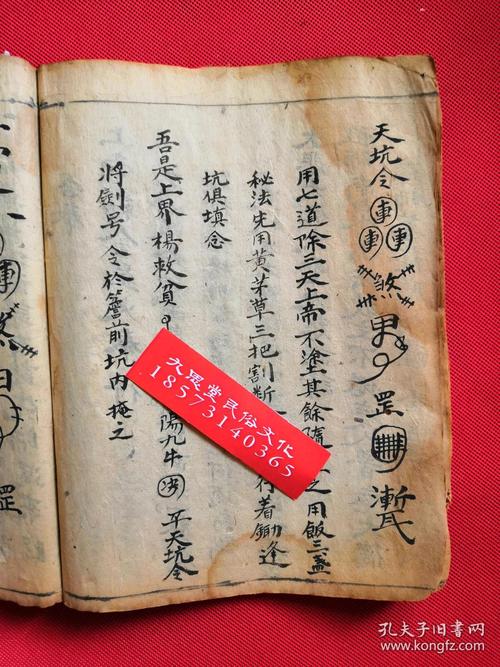 天坑令 煞 罡
用七道除三天上帝不塗其餘隨之用飯三盞
秘法先用黃茅草三把割斷行着鋤逢
坑俱填念
吾是上界楊救貧陽九牛 平天坑令
將劍号令於簷前坑內掩之
大思堂民俗文化
18573140365
罡
孔夫子旧书网
kongfz.com